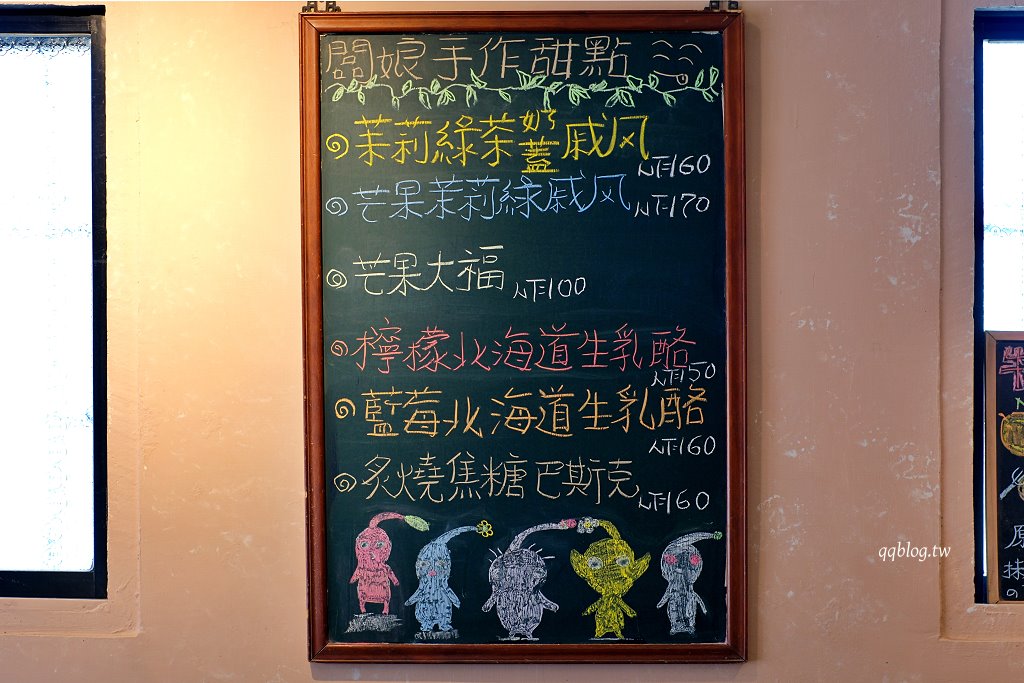 闆娘手作甜點
茉莉綠茶奶蓋戚风
NT:160
芒果茉莉綠戚风
NT:170
芒果大福
NT:100
檸檬北海道生乳酪
NT:150
藍莓北海道生乳酪
NT:160
炙燒焦糖巴斯克
NT:160
qqblog.tw
原
抹
の